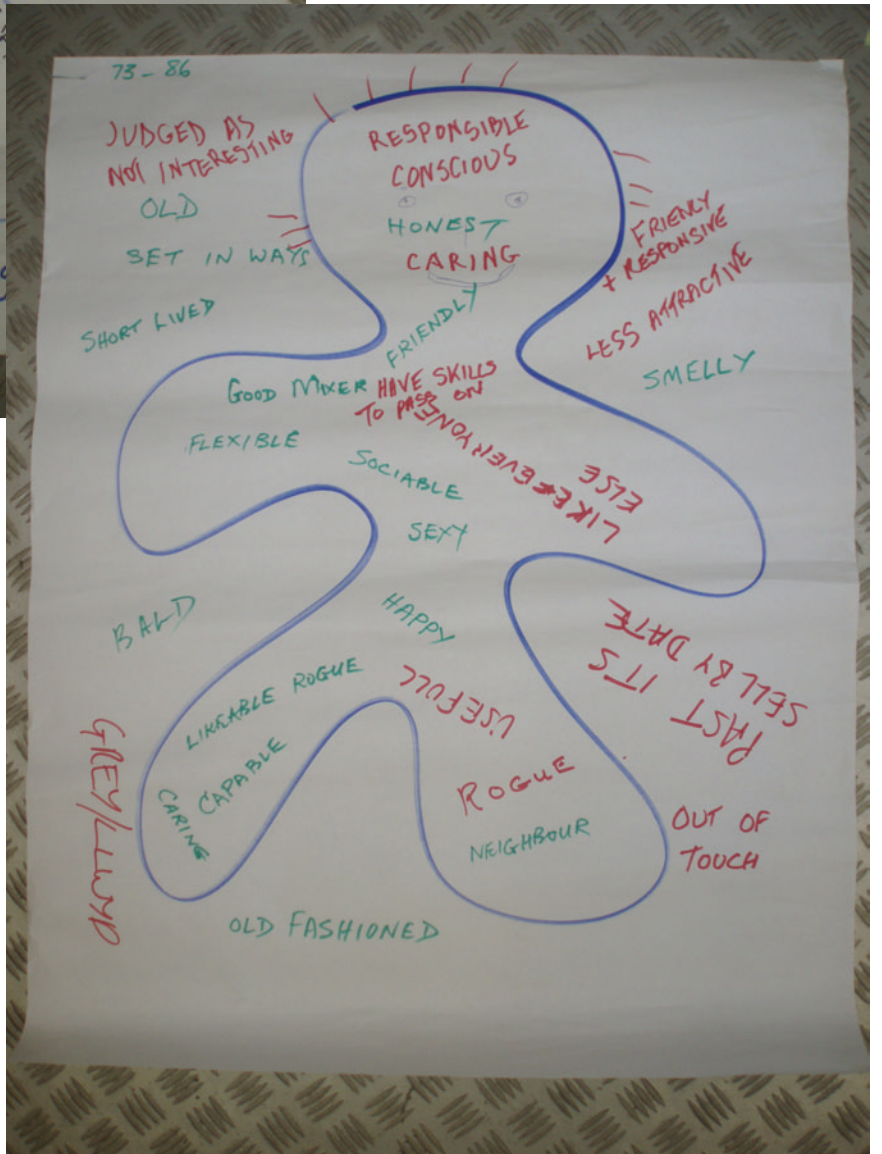 73 - 86
JUDGED AS
NOT INTERESTING
OLD
SET IN WAYS
SHORT LIVED
RESPONSIBLE
CONSCIOUS
HONEST
CARING
FRIENLY
+ RESPONSIVE
LESS ATTRACTIVE
SMELLY
FRIENDLY
GOOD MIXER
HAVE SKILLS
TO PASS ON
FLEXIBLE
SOCIABLE
LIKE EVERYONE
ELSE
SEXY
HAPPY
BALD
LIKEABLE ROGUE
CAPABLE
CARING
USEFULL
ROGUE
NEIGHBOUR
PAST
IT'S
SELL BY DATE
OUT OF
TOUCH
GREY/LLWYD
OLD FASHIONED